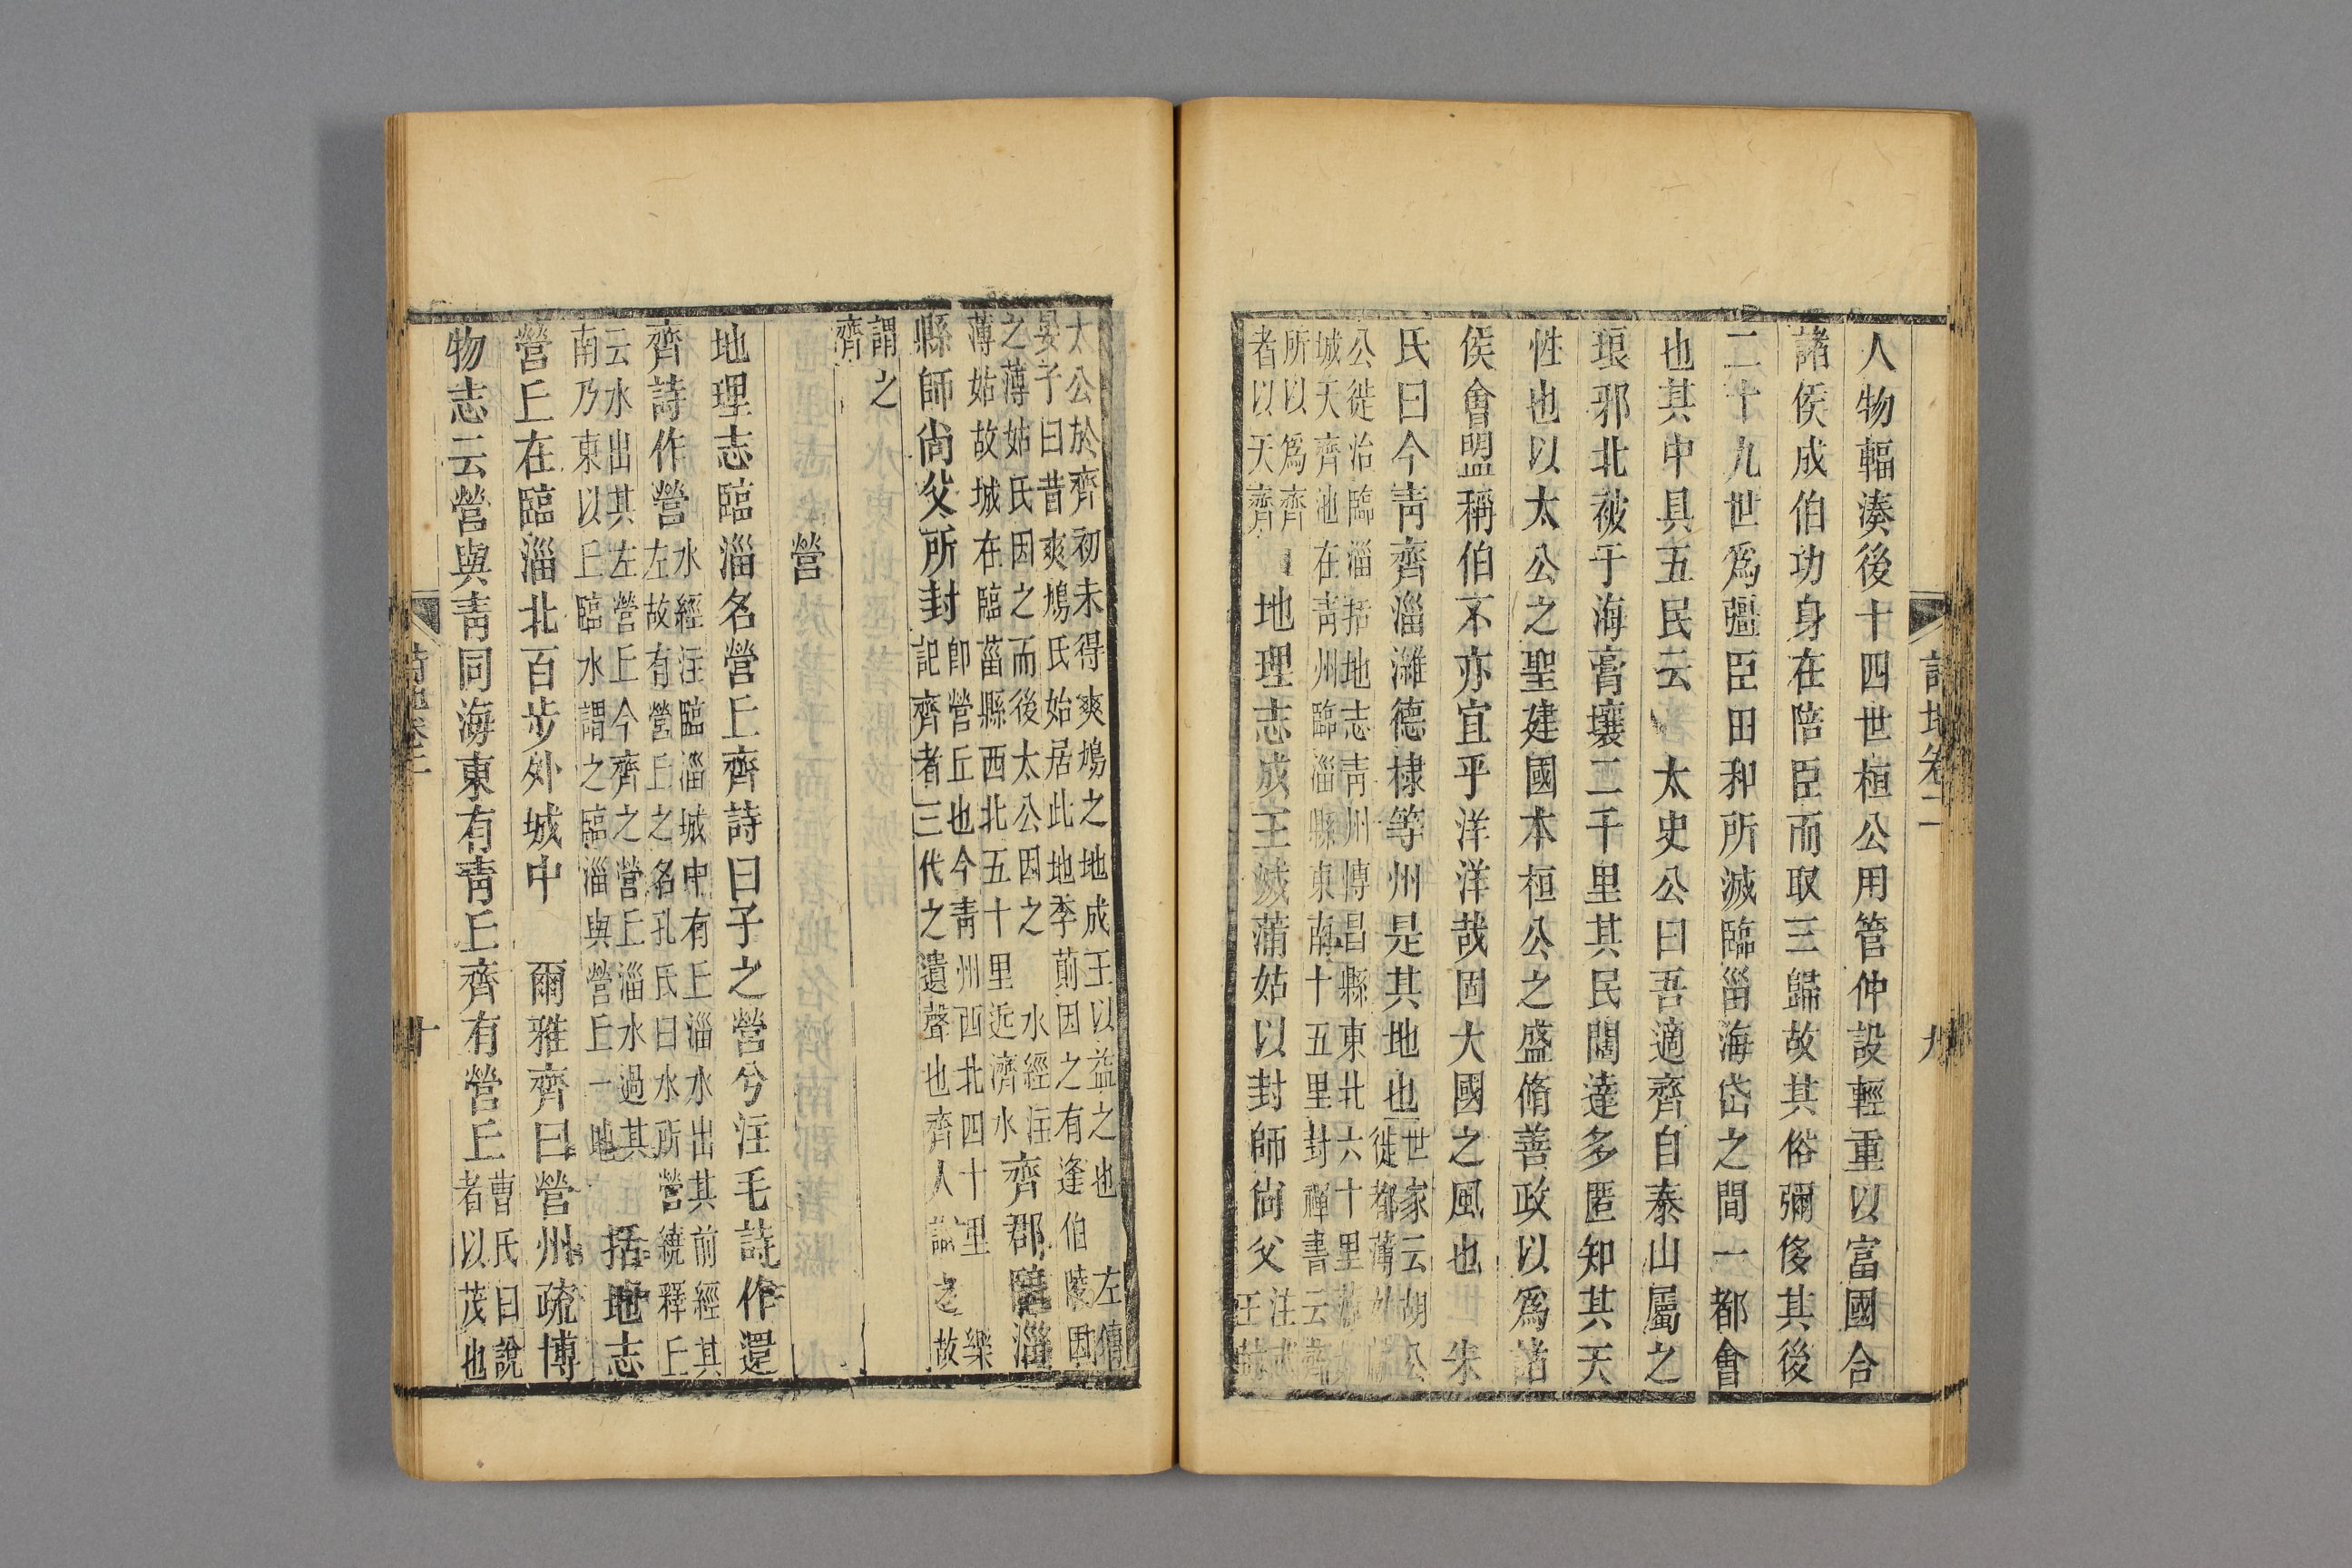 人物輻湊後十四世桓公用管仲設輕重以富國合
諸侯成伯功身在陪臣而取三歸故其俗彌侈其後
二十九世為彊臣田和所滅臨甾海岱之間一都會
也其中具五民云 太史公曰吾適齊自泰山屬之
琅邪北被于海膏壤二千里其民闊達多匿知其天
性也以太公之聖建國本桓公之盛脩善政以為諸
侯會盟稱伯不亦宜乎洋洋哉固大國之風也 朱
氏曰今青齊淄濰德棣等州是其地也
世家云胡公
徙都薄姑
公徙治臨淄括地志青州博昌縣東北六十里
城天齊池在青州臨淄縣東南十五里封禪書云齊
所以為齊
者以天齊
地理志成王滅蒲姑以封師尚父
詩地卷二
九
太公於齊初未得爽鳩之地成王以益之也 左傳
晏子曰昔爽鳩氏始居此地季萴因之有逢伯陵因
之薄姑氏因之而後太公因之 水經注
薄姑故城在臨菑縣西北五十里近濟水
齊郡臨淄
縣師尚父所封
即營丘也今青州西北四十里 樂
記齊者三代之遺聲也齊人識之故
謂之
齊
營
地理志臨淄名營丘齊詩曰子之營兮注毛詩作還
齊詩作營
水經注臨淄城中有丘淄水出其前經其
左故有營丘之名孔氏曰水所營繞釋丘
云水出其左營丘今齊之營丘淄水過其
南乃東以丘臨水謂之臨淄與營丘一地
括地志
營丘在臨淄北百步外城中 爾雅齊曰營州疏博
物志云營與青同海東有青丘齊有營丘
曹氏曰說
者以茂也
十